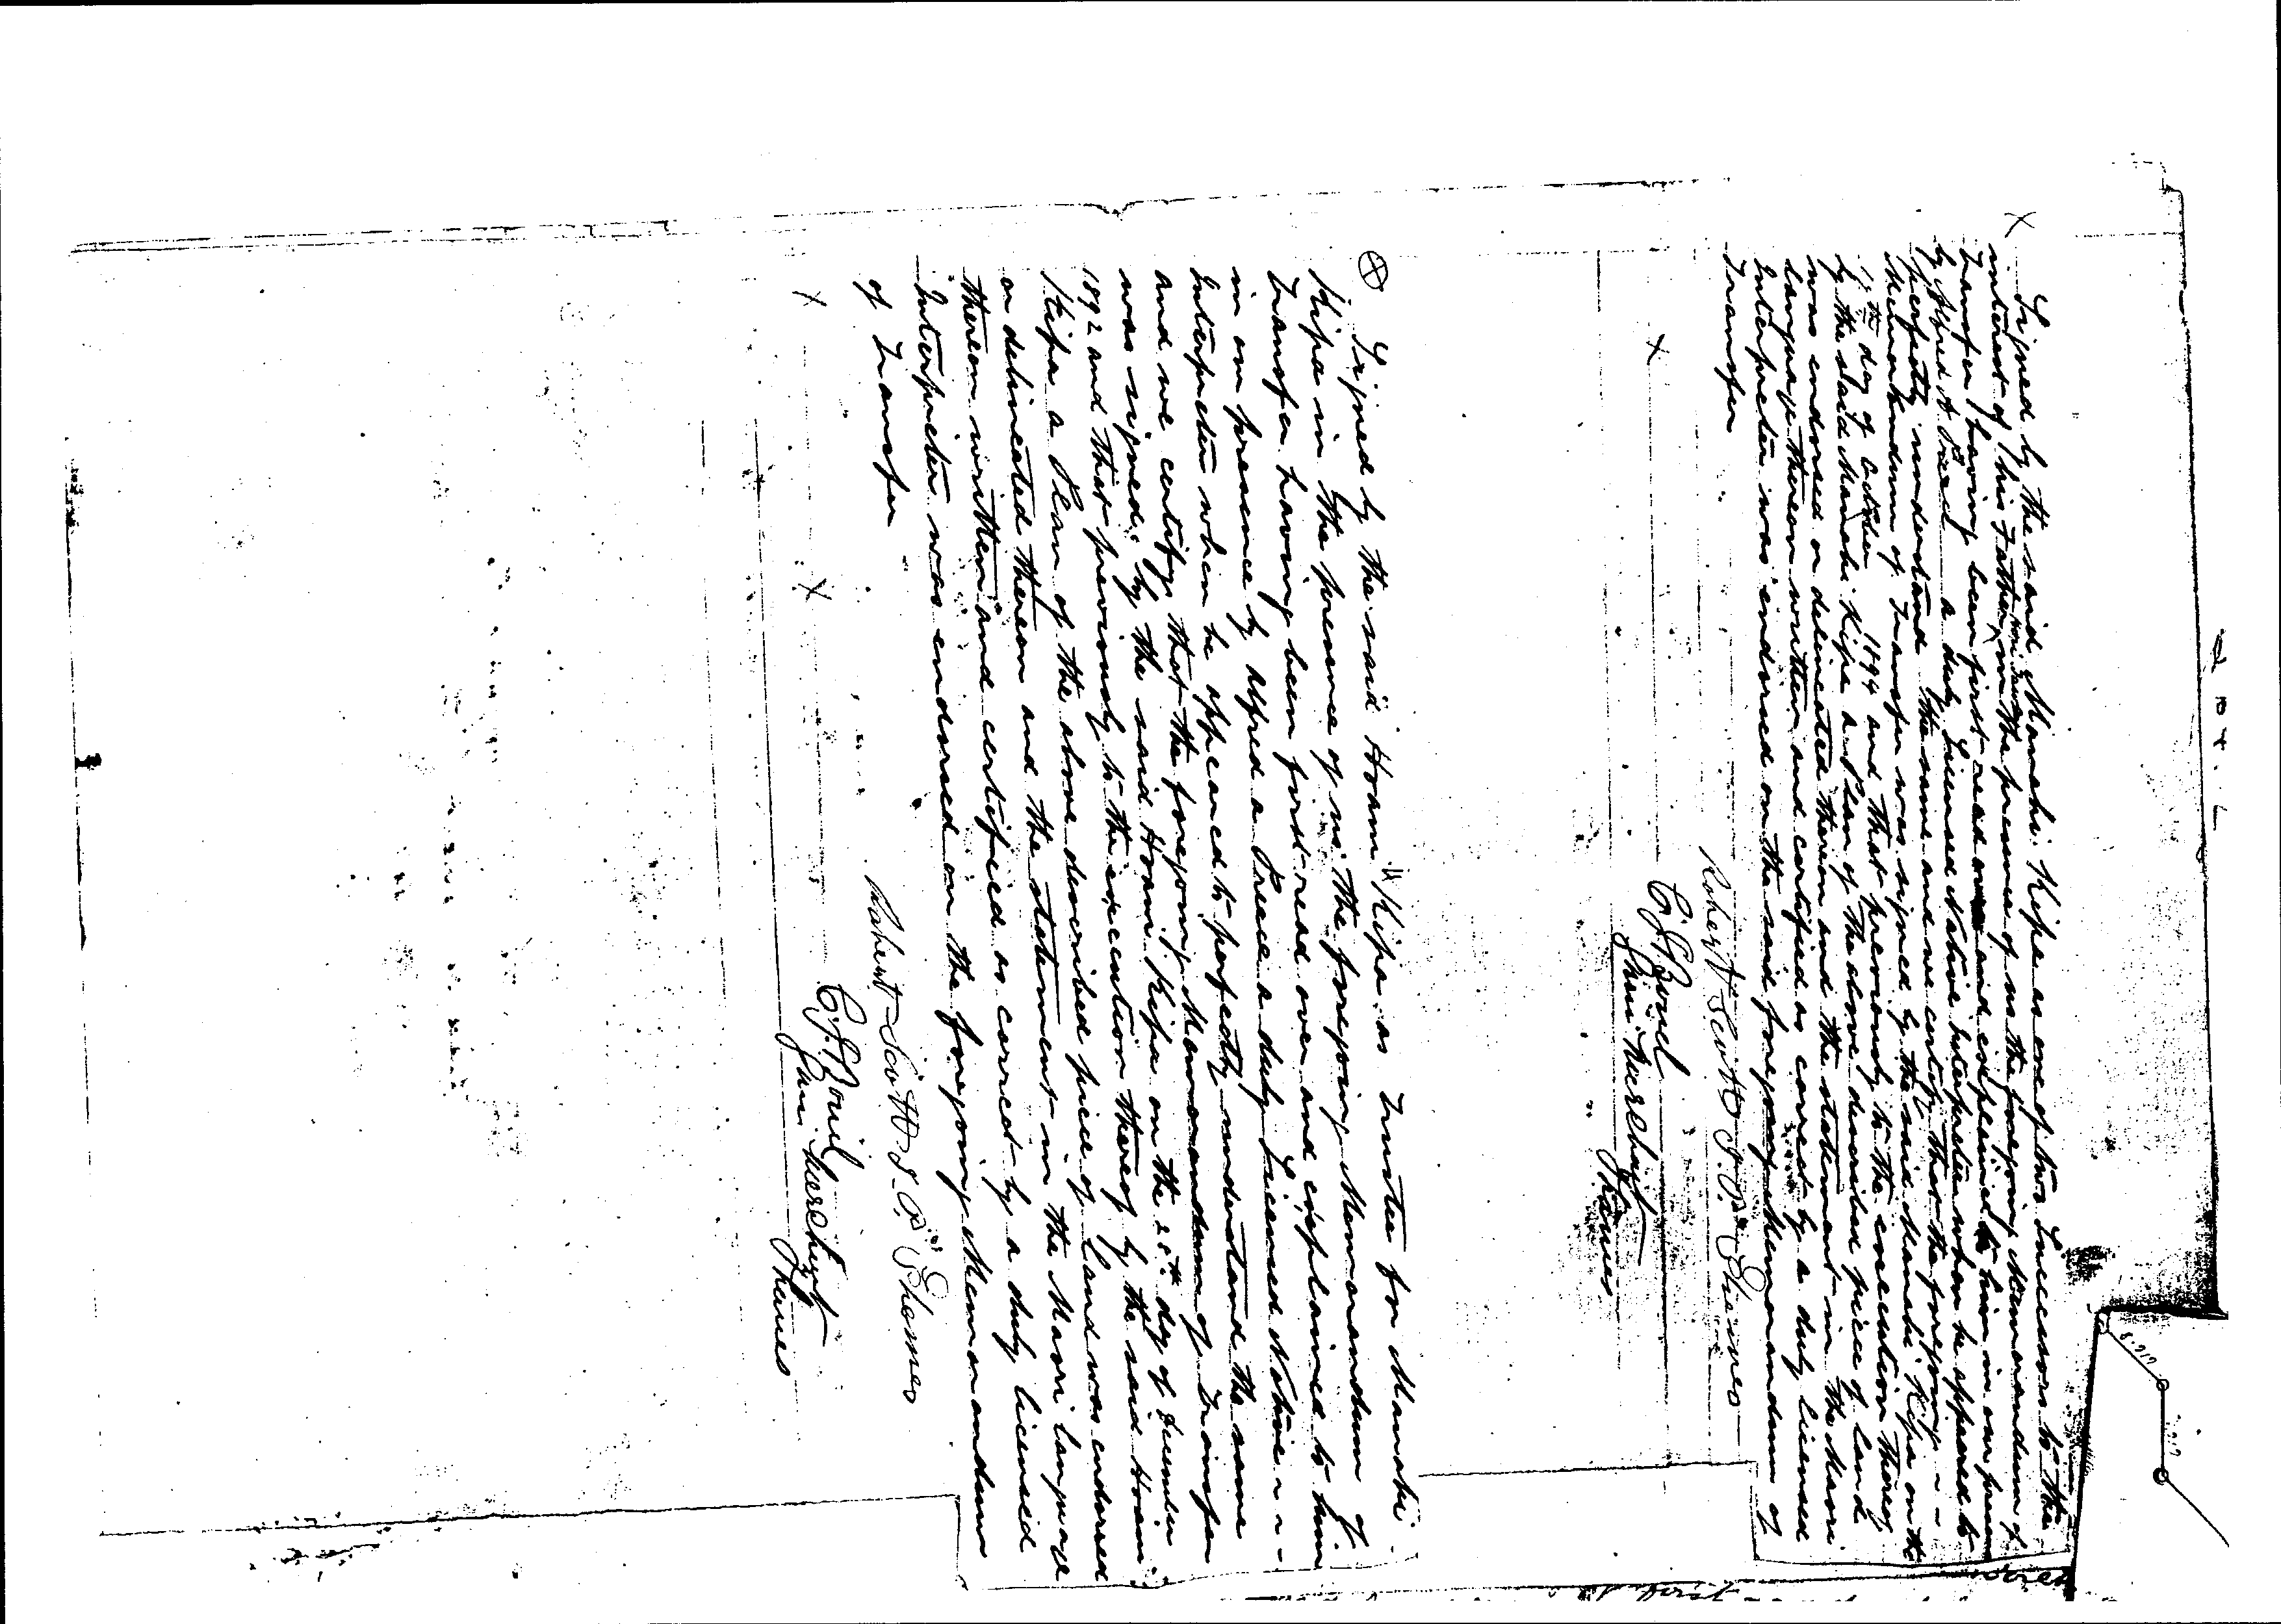 Signed by the said Manahi Kipa as one of two Successors to the
interest of his Father in the presence of us the foregoing Memorandum of
Transfer having been first read over and explained to him in our presence
by Alfred A Preece a duly Licensed Native Interpreter when he appeared to
perfectly understand the same and we certify that the foregoing
Memorandum of Transfer was signed by the said Manahi Kipa on the
day of October 1894 and that previously to the execution thereof
by the said Manahi Kipa a Plan of the above described piece of land
was endorsed or delineated thereon and the statement in the Maori
language thereon written and certified as correct by a duly licensed
Interpreter was endorsed on the said foregoing Memorandum of
Transfer
Robert Scott J.P. Thames
Thames
⊗ Signed by the said Hoani Kipa as Trustee for Manahi
Kipa in the presence of us the foregoing Memorandum of
Transfer having been first read over and explained to him
in our presence by Alfred A Preece a duly Licensed Native
Interpreter when he appeared to perfectly understand the same
and we certify that the foregoing Memorandum of Transfer
was signed by the said Hoani Kipa on the day of December
1892 and that previously to the execution thereof by the said Hoani
Kipa a Plan of the above described piece of land was endorsed
or delineated thereon and the statement in the Maori language
thereon written and certified as correct by a duly licensed
Interpreter was endorsed on the foregoing Memorandum
of Transfer
Robert Scott J.P. Thames
Thames
first